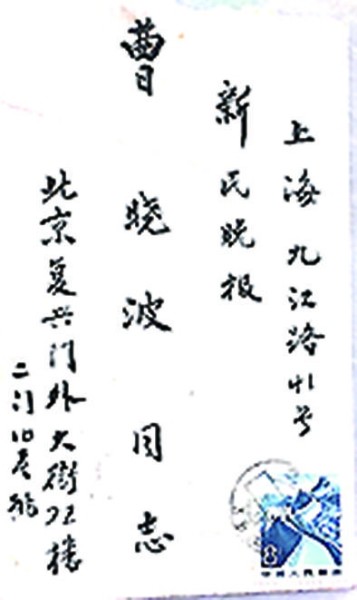 上海九江路41号
新民晚报
曹晓波同志
北京复兴门外大街22楼
二门10号
8
中国人民邮政